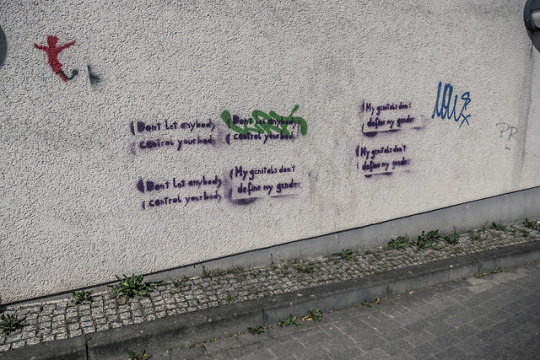 Don't let anybody
control your body
Dont let anybody
control your body
My genitals don't
define my gender
Don't let anybody
control your body
My genitals don't
define my gender
My genitals don't
define my gender
PR